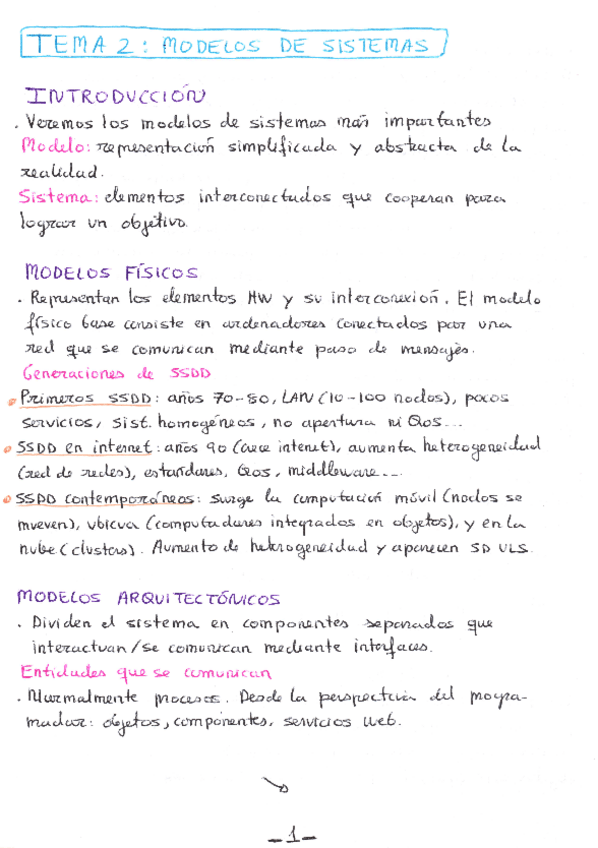 TEMA 2: MODELOS DE SISTEMAS
INTRODUCCIÓN
. Veremos los modelos de sistemas más importantes
Modelo: representación simplificada y abstracta de la
realidad.
Sistema: elementos interconectados que cooperan para
lograr un objetivo.
MODELOS FÍSICOS
. Representan los elementos HW y su interconexión. El modelo
físico base consiste en ordenadores conectados por una
red que se comunican mediante paso de mensajes.
Generaciones de SSDD
Primeros SSDD: años 70-80, LAN (10-100 nodos), pocos
servicios, sist. homogéneos, no apertura ni QoS...
SSDD en internet: años 90 (crece internet), aumenta heterogeneidad
(red de redes), estandares, QoS, middleware...
SSDD contemporáneos: surge la computación móvil (nodos se
mueven), ubicua (computadores integrados en objetos), y en la
nube (clusters). Aumento de heterogeneidad y aparecen SD ULS.
MODELOS ARQUITECTÓNICOS
. Dividen el sistema en componentes separados que
interactuan/se comunican mediante interfaces.
Entidades que se comunican
. Normalmente procesos. Desde la perspectiva del progra-
mador: objetos, componentes, servicios web.
-1-